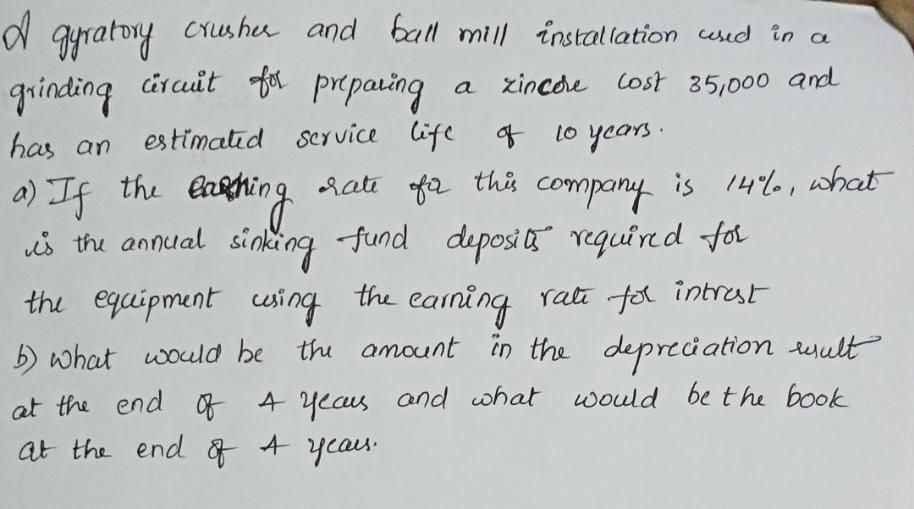 A gyratory crusher and ball mill installation used in a
grinding circuit for preparing a zincore cost 35,000 and
has an estimated service life of 10 years.
a) If the earning rate for this company is 14%, what
is the annual sinking fund deposits required for
the equipment using the earning rate for intrest
b) what would be the amount in the depreciation result
at the end of 4 years and what would be the book
at the end of 4 years.